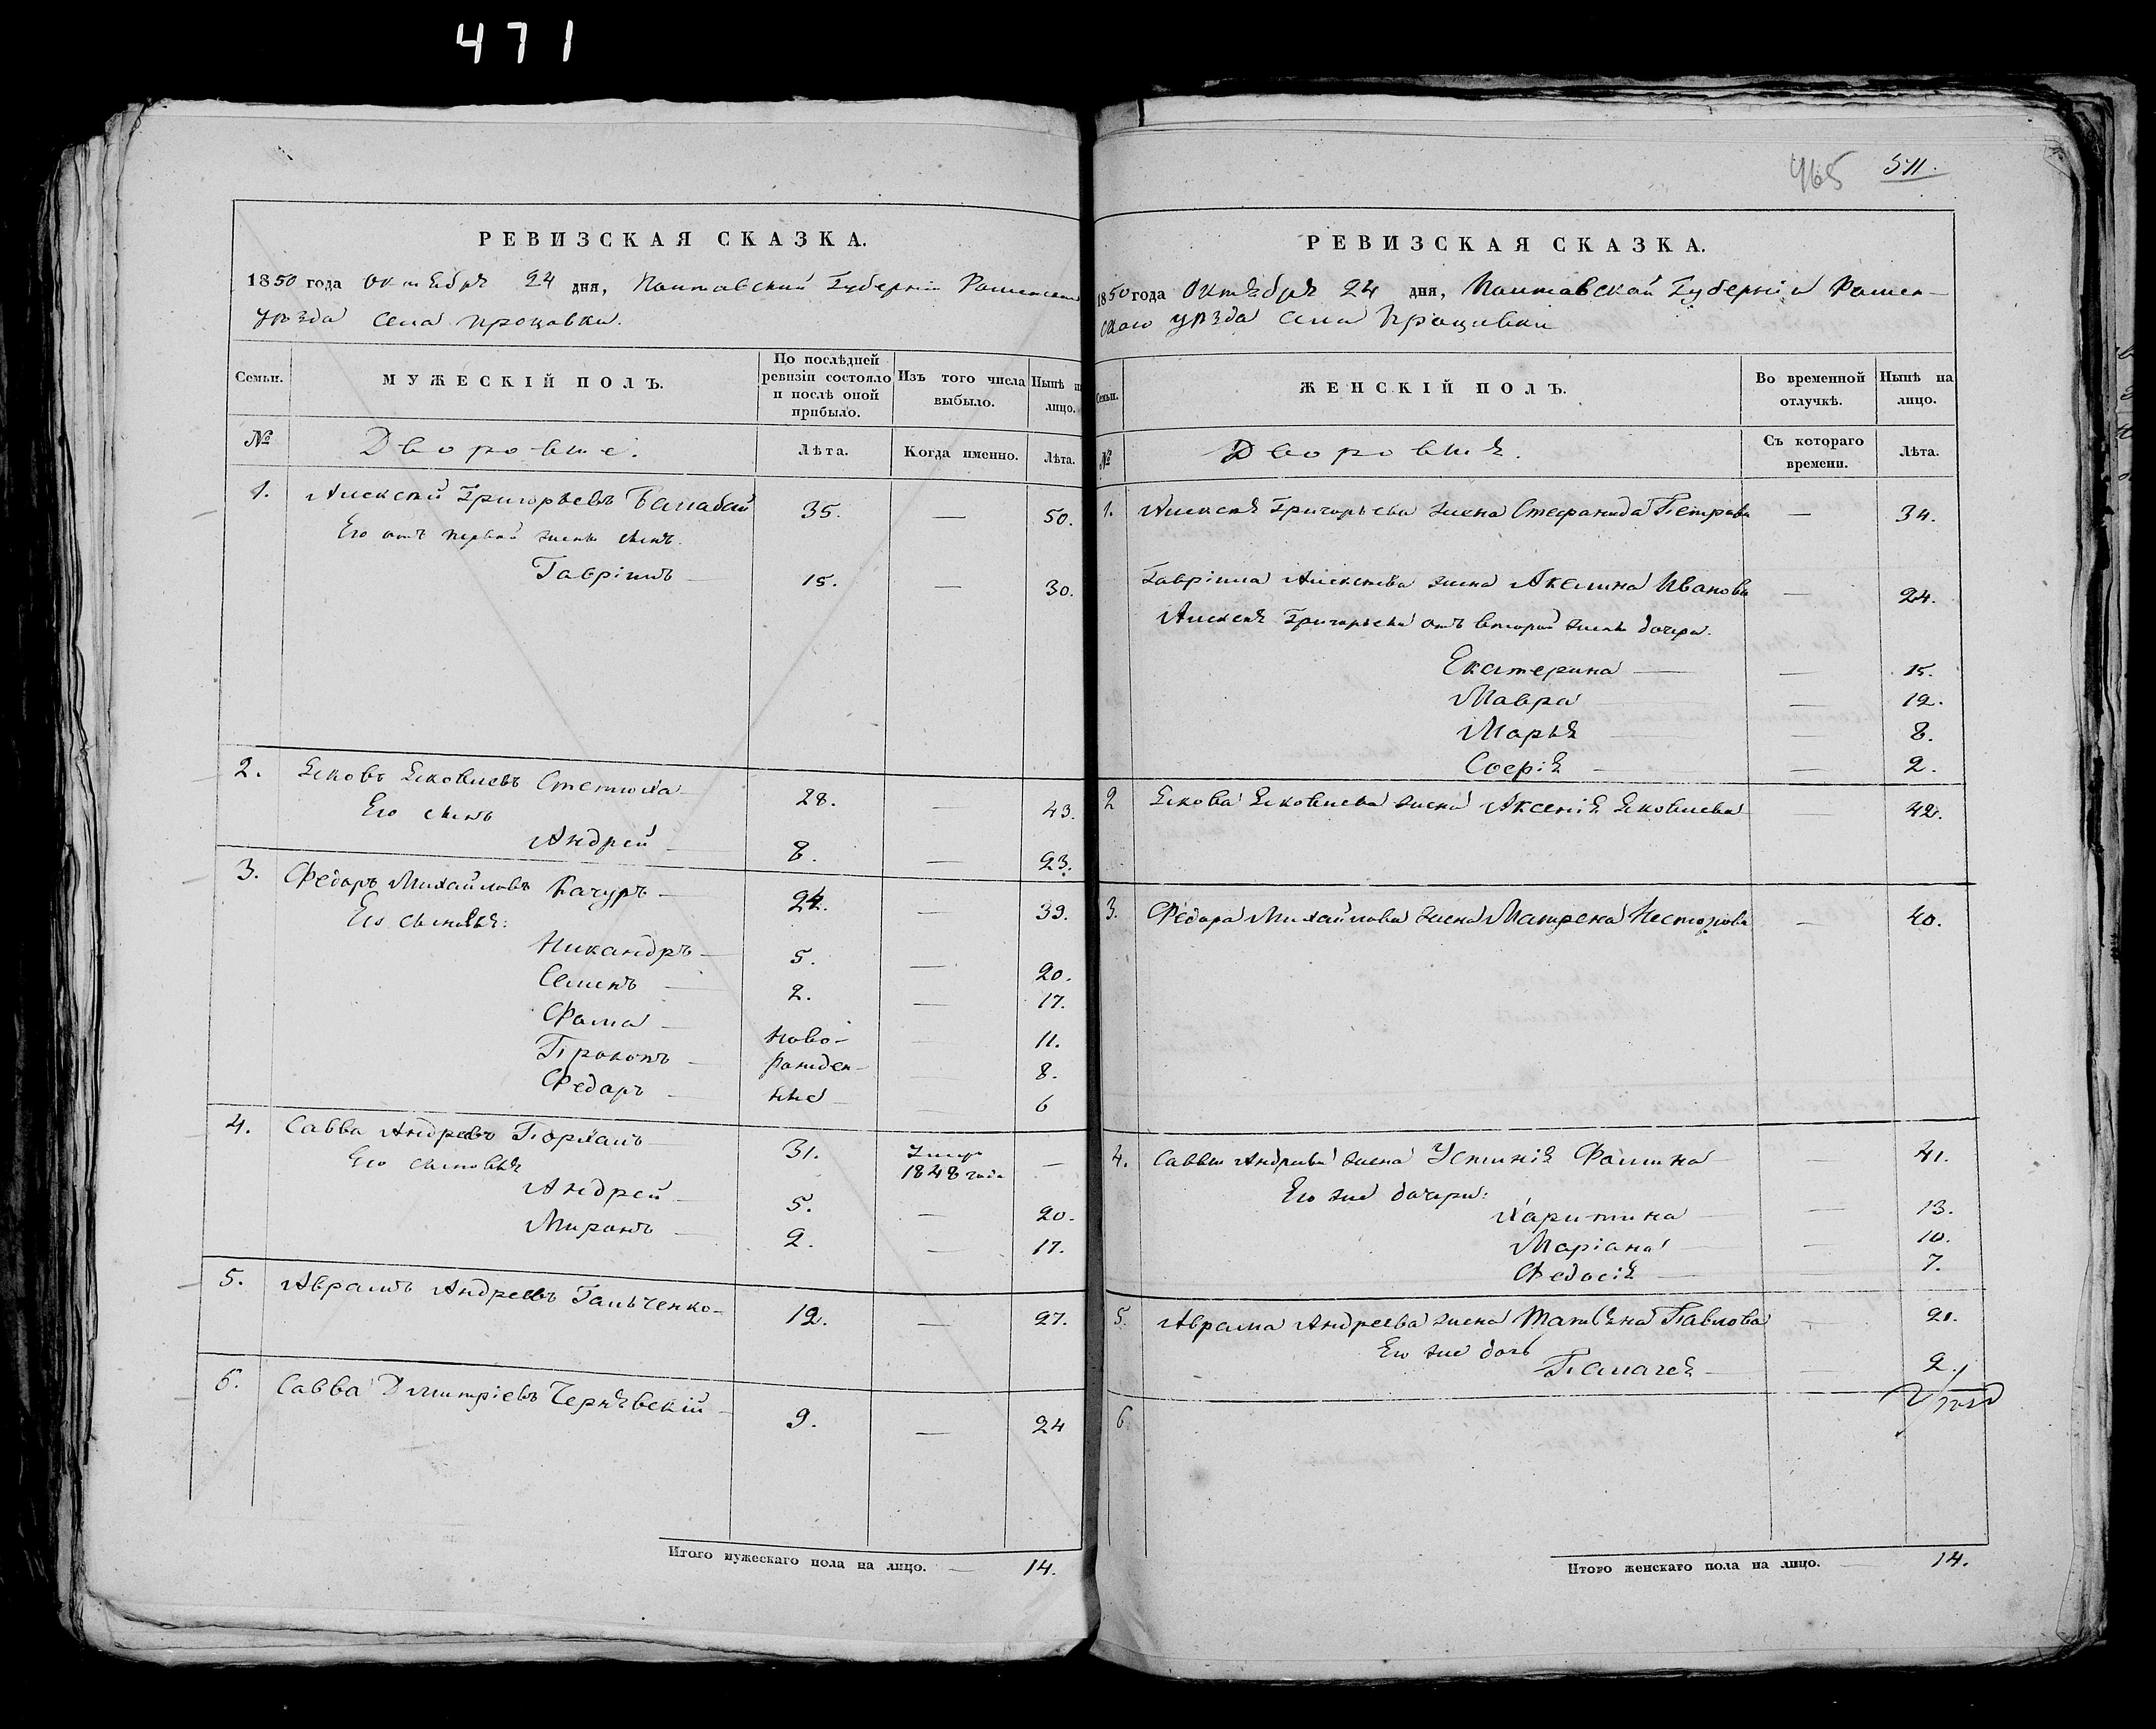 471
465 511.
РЕВИЗСКАЯ СКАЗКА.
1850 года Октября 24 дня, Полтавской Губерніи Роменскаго
уѣзда села Процовки.
Семьи. МУЖЕСКІЙ ПОЛЪ. По послѣдней ревизіи состояло и послѣ оной прибыло. Изъ того числа выбыло. Нынѣ на лицо.
№ Дворовые. Лѣта. Когда именно. Лѣта.
1. Алексѣй Григорьевъ Балабай 35. — 50.
Его отъ первой жены сынъ.
Гаврiилъ — 15. — 30.
2. Яковъ Яковлевъ Стетюха 28. — 43.
Его сынъ
Андрей — 8. — 23.
3. Федоръ Михайловъ Качуръ — 24. — 39.
Его сыновья:
Никандръ — 5. — 20.
Семенъ — 2. — 17.
Фома — Ново- — 11.
Прокопъ — рожден- — 8.
Федоръ — ные — 6
4. Савва Андреевъ 31. Умеръ 1848 года —
Его сыновья
Андрей — 5. — 20.
Миронъ — 2. — 17.
5. Аврамъ Андреевъ Гальченко — 12. — 27.
6. Савва Дмитріевъ Чернявскій — 9. — 24
Итого мужескаго пола на лицо. — 14.
РЕВИЗСКАЯ СКАЗКА.
1850 года Октября 24 дня, Полтавской Губерніи Ромен-
скаго уѣзда села Процовки
Семьи. ЖЕНСКІЙ ПОЛЪ. Во временной отлучкѣ. Нынѣ на лицо.
№ Дворовыя. Съ котораго времени. Лѣта.
1. Алексѣя Григорьева жена Стефанида Петрова — 34.
Гавріила Алексѣева жена Акелина Иванова — 24.
Алексѣя Григорьева отъ второй жены дочери.
Екатерина — — 15.
Мавра — 12.
Марья — 8.
Софія — — 2.
2 Якова Яковлева жена Аксенія Яковлева — 42.
3. Федора Михайлова жена Матрена Несторова — 40.
4. Саввы Андреева жена Устинія Фомина — 41.
Его же дочери:
Харитина — — 13.
Маріана — — 10.
Федосія — — 7.
5. Аврама Андреева жена Татьяна Павлова — 21.
Его же дочь
Пелагея — — 2.
6
Итого женскаго пола на лицо. — 14.